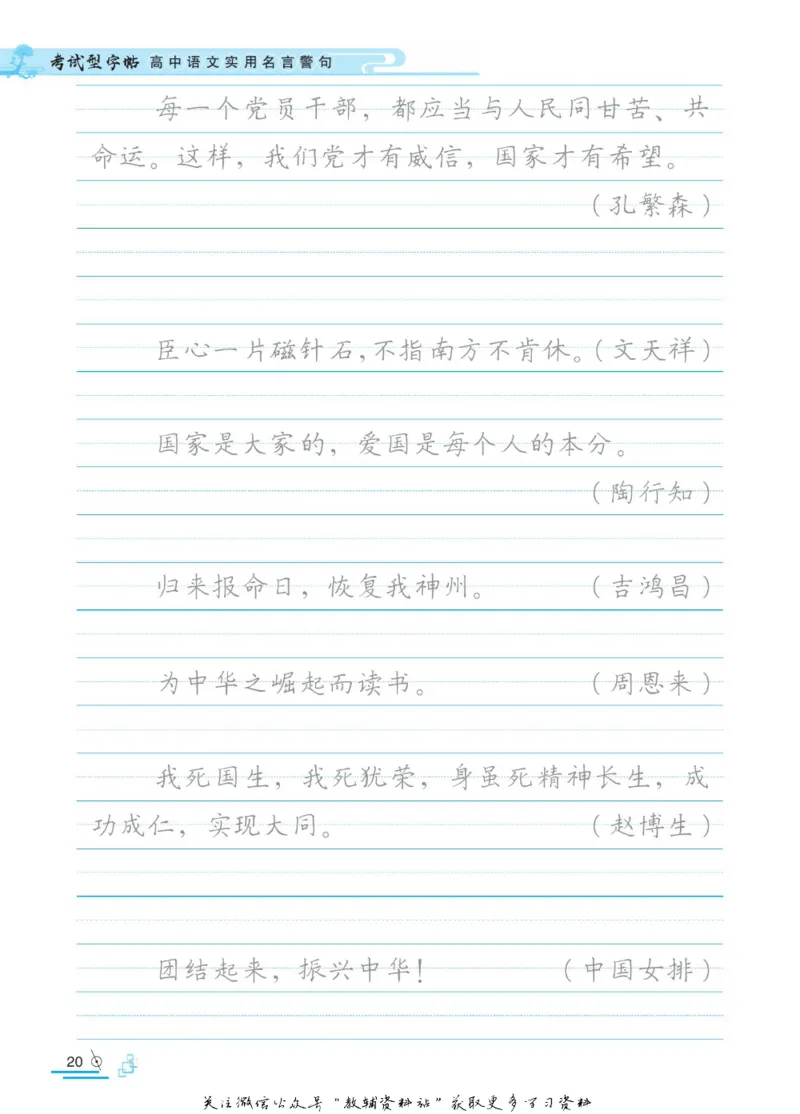 考试型字帖 高中语文实用名言警句
每一个党员干部，都应当与人民同甘苦、共
命运。这样，我们党才有威信，国家才有希望。
（孔繁森）
臣心一片磁针石，不指南方不肯休。（文天祥）
国家是大家的，爱国是每个人的本分。
（陶行知）
归来报命日，恢复我神州。 （吉鸿昌）
为中华之崛起而读书。 （周恩来）
我死国生，我死犹荣，身虽死精神长生，成
功成仁，实现大同。 （赵博生）
团结起来，振兴中华！ （中国女排）
20
关注微信公众号“教辅资料站”获取更多学习资料